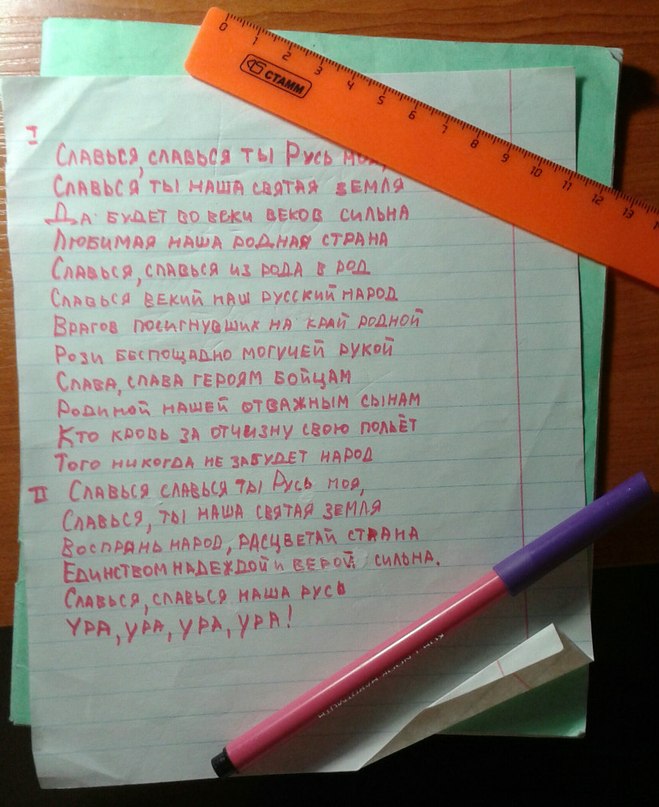 0 1 2 3 4 5 6 7 8 9 10 11 12 13
СТАММ
I
Славься, славься ты Русь моя,
Славься ты наша святая земля
Да будет во веки веков сильна
Любимая наша родная страна
Славься, славься из рода в род
Славься векий наш русский народ
Врагов посигнувших на край родной
Рози беспощадно могучей рукой
Слава, слава героям бойцам
Родиной нашей отважным сынам
Кто кровь за отчизну свою польёт
Того никогда не забудет народ
II Славься славься ты Русь моя,
Славься, ты наша святая земля
Воспрянь народ, расцветай страна
Единством надеждой и верой сильна.
Славься, славься наша русь
Ура, ура, ура, ура!